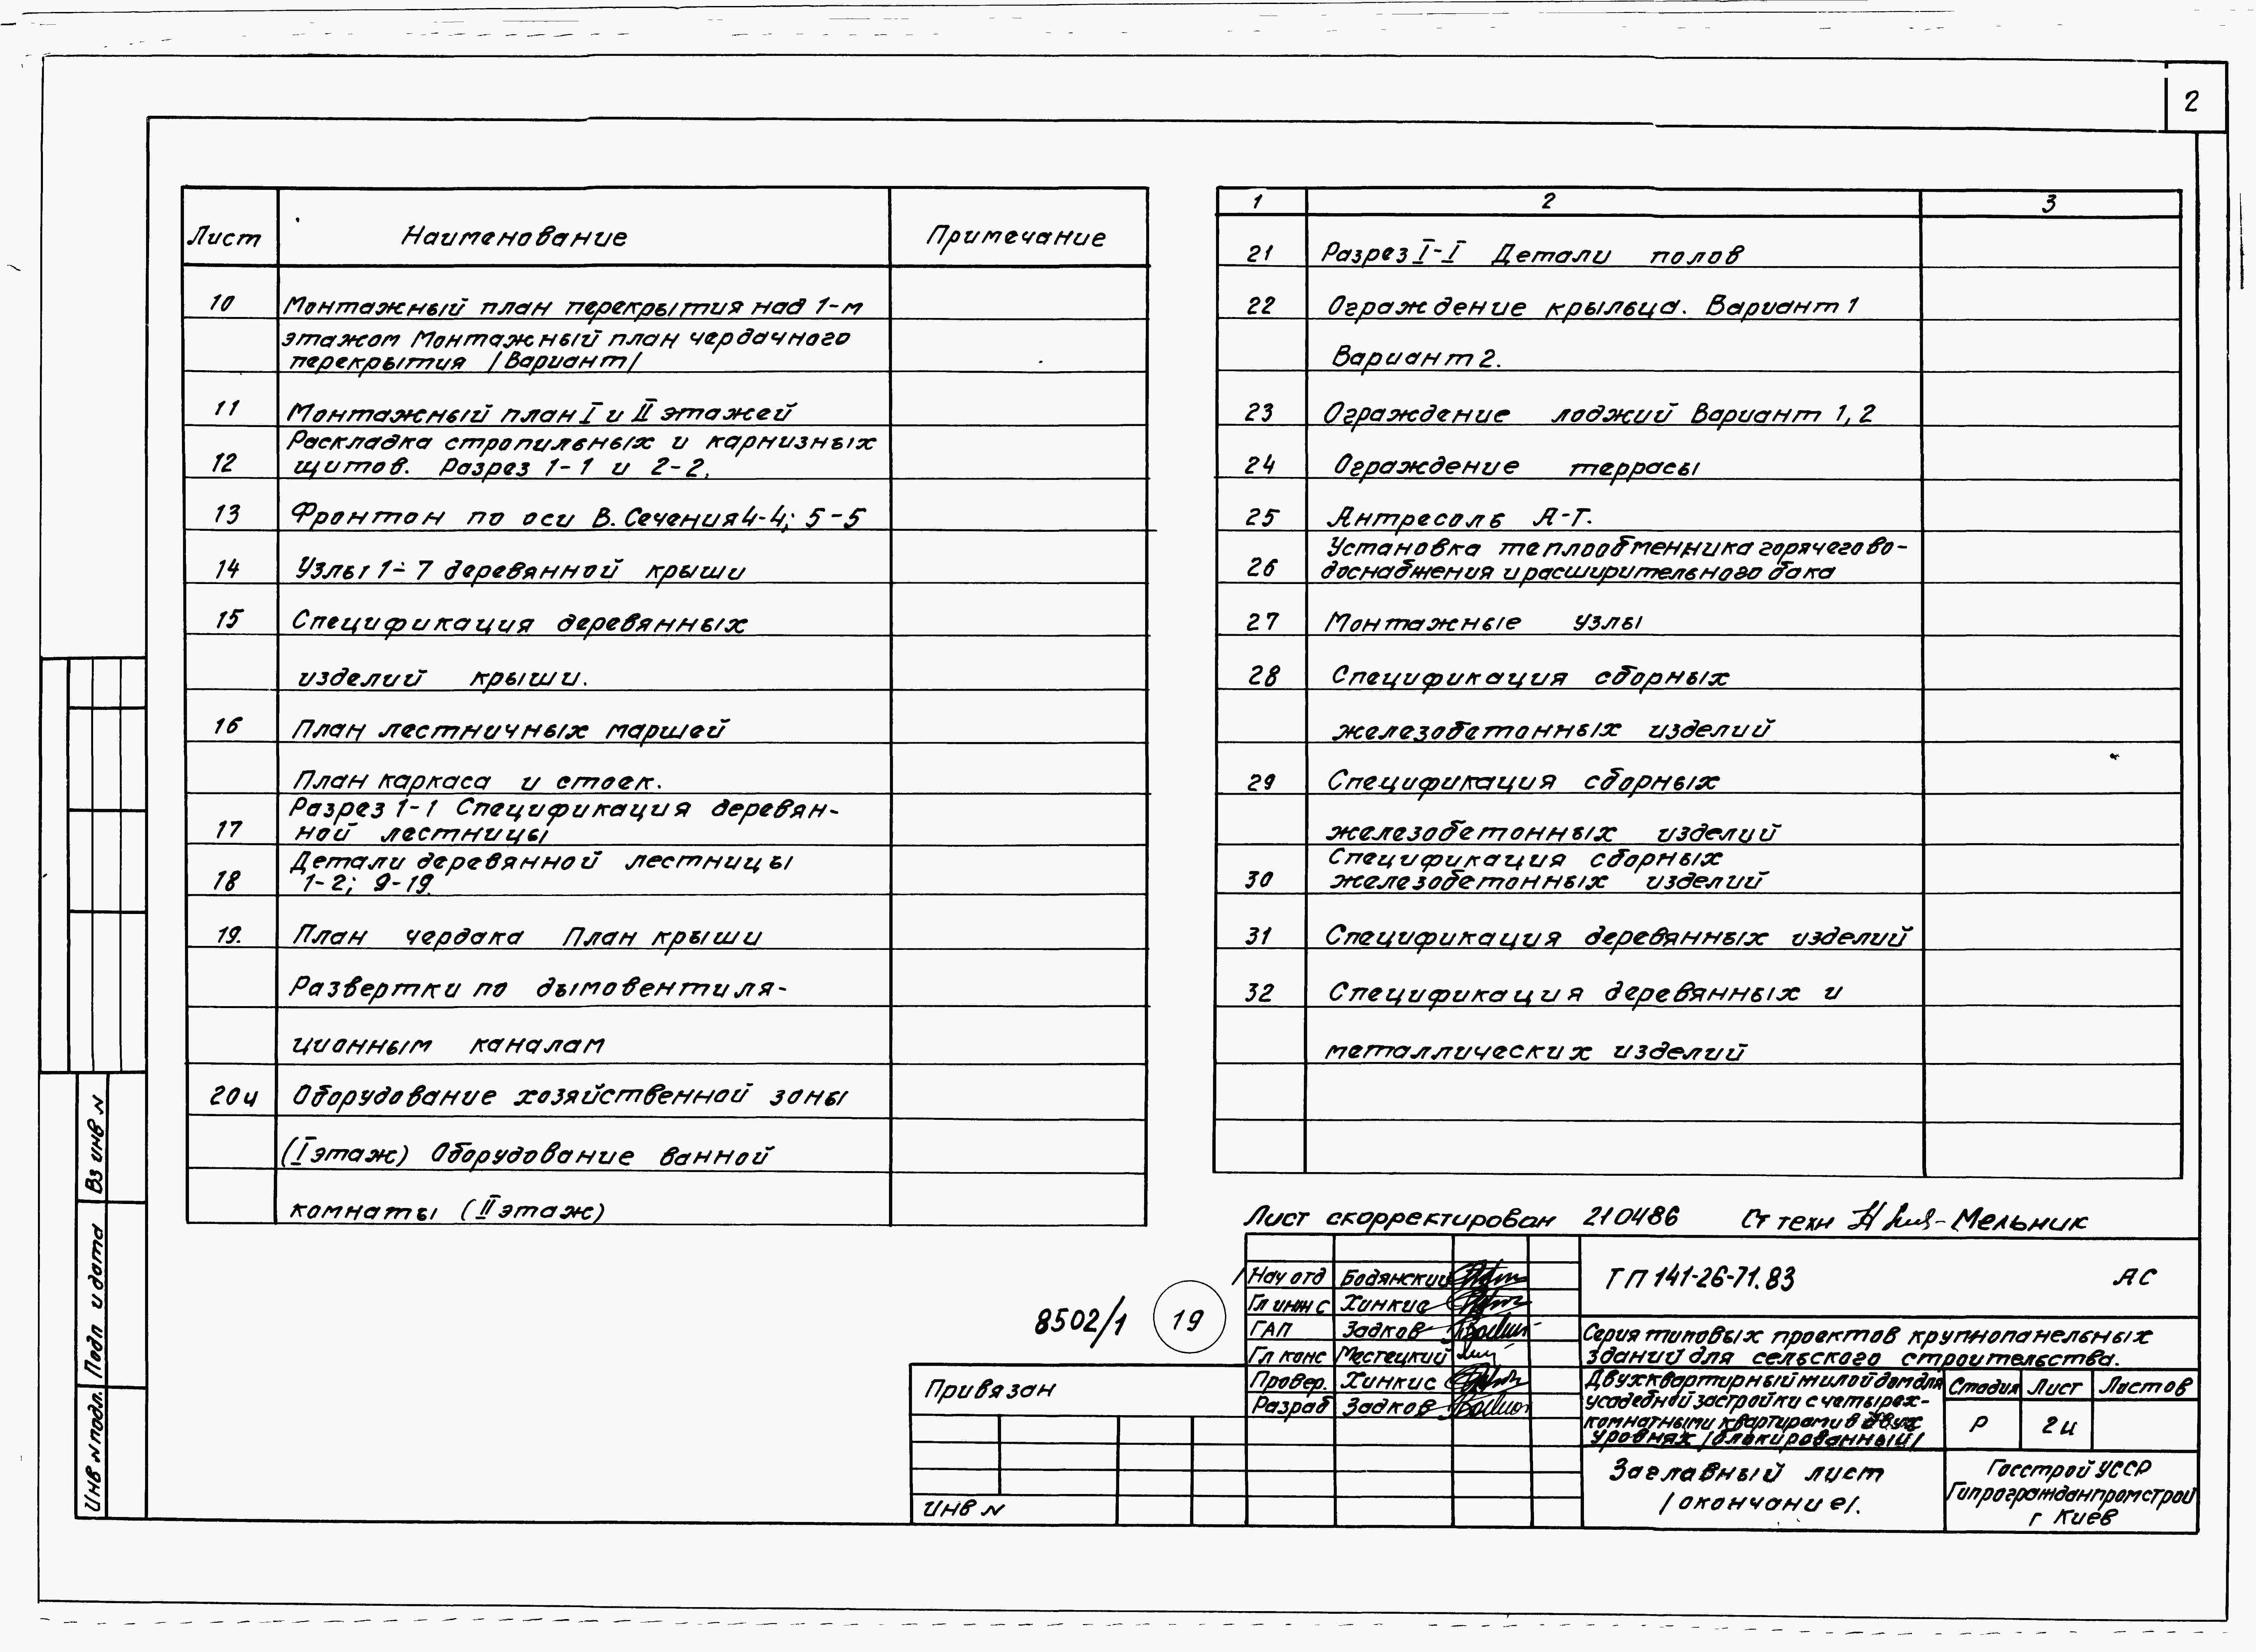 2
Лист Наименование Примечание
10 Монтажный план перекрытия над 1-м
этажом Монтажный план чердачного
перекрытия /Вариант/
11 Монтажный план I и II этажей
Раскладка стропильных и карнизных
12 щитов. Разрез 1-1 и 2-2.
13 Фронтон по оси В. Сечения 4-4; 5-5
14 Узлы 1÷7 деревянной крыши
15 Спецификация деревянных
изделий крыши.
16 План лестничных маршей
План каркаса и стоек.
Разрез 1-1 Спецификация деревян-
17 ной лестницы
Детали деревянной лестницы
18 1-2; 9-19.
19. План чердака План крыши
Развертки по дымовентиля-
ционным каналам
20и Оборудование хозяйственной зоны
(I этаж) Оборудование ванной
комнаты (II этаж)
1 2 3
21 Разрез I-I Детали полов
22 Ограждение крыльца. Вариант 1
Вариант 2.
23 Ограждение лоджий Вариант 1, 2
24 Ограждение террасы
25 Антресоль А-Т.
Установка теплообменника горячего во-
26 доснабжения и расширительного бака
27 Монтажные узлы
28 Спецификация сборных
железобетонных изделий
29 Спецификация сборных
железобетонных изделий
Спецификация сборных
30 железобетонных изделий
31 Спецификация деревянных изделий
32 Спецификация деревянных и
металлических изделий
Лист скорректирован 210486 Ст техн Мельник
Нач отд Бодянский
Гл инж с Хинкис
ГАП Задков
Гл конс Местецкий
Провер. Хинкис
Разраб Задков
ТП 141-26-71.83 АС
Серия типовых проектов крупнопанельных
зданий для сельского строительства.
Двухквартирный жилой дом для
усадебной застройки с четырех-
комнатными квартирами в двух
уровнях /блокированный/
Стадия Лист Листов
Р 2и
Заглавный лист
/окончание/.
Госстрой УССР
Гипрогражданпромстрой
г Киев
8502/1 19
Привязан
Инв N
Вз инв N
Подп и дата
Инв N подл.